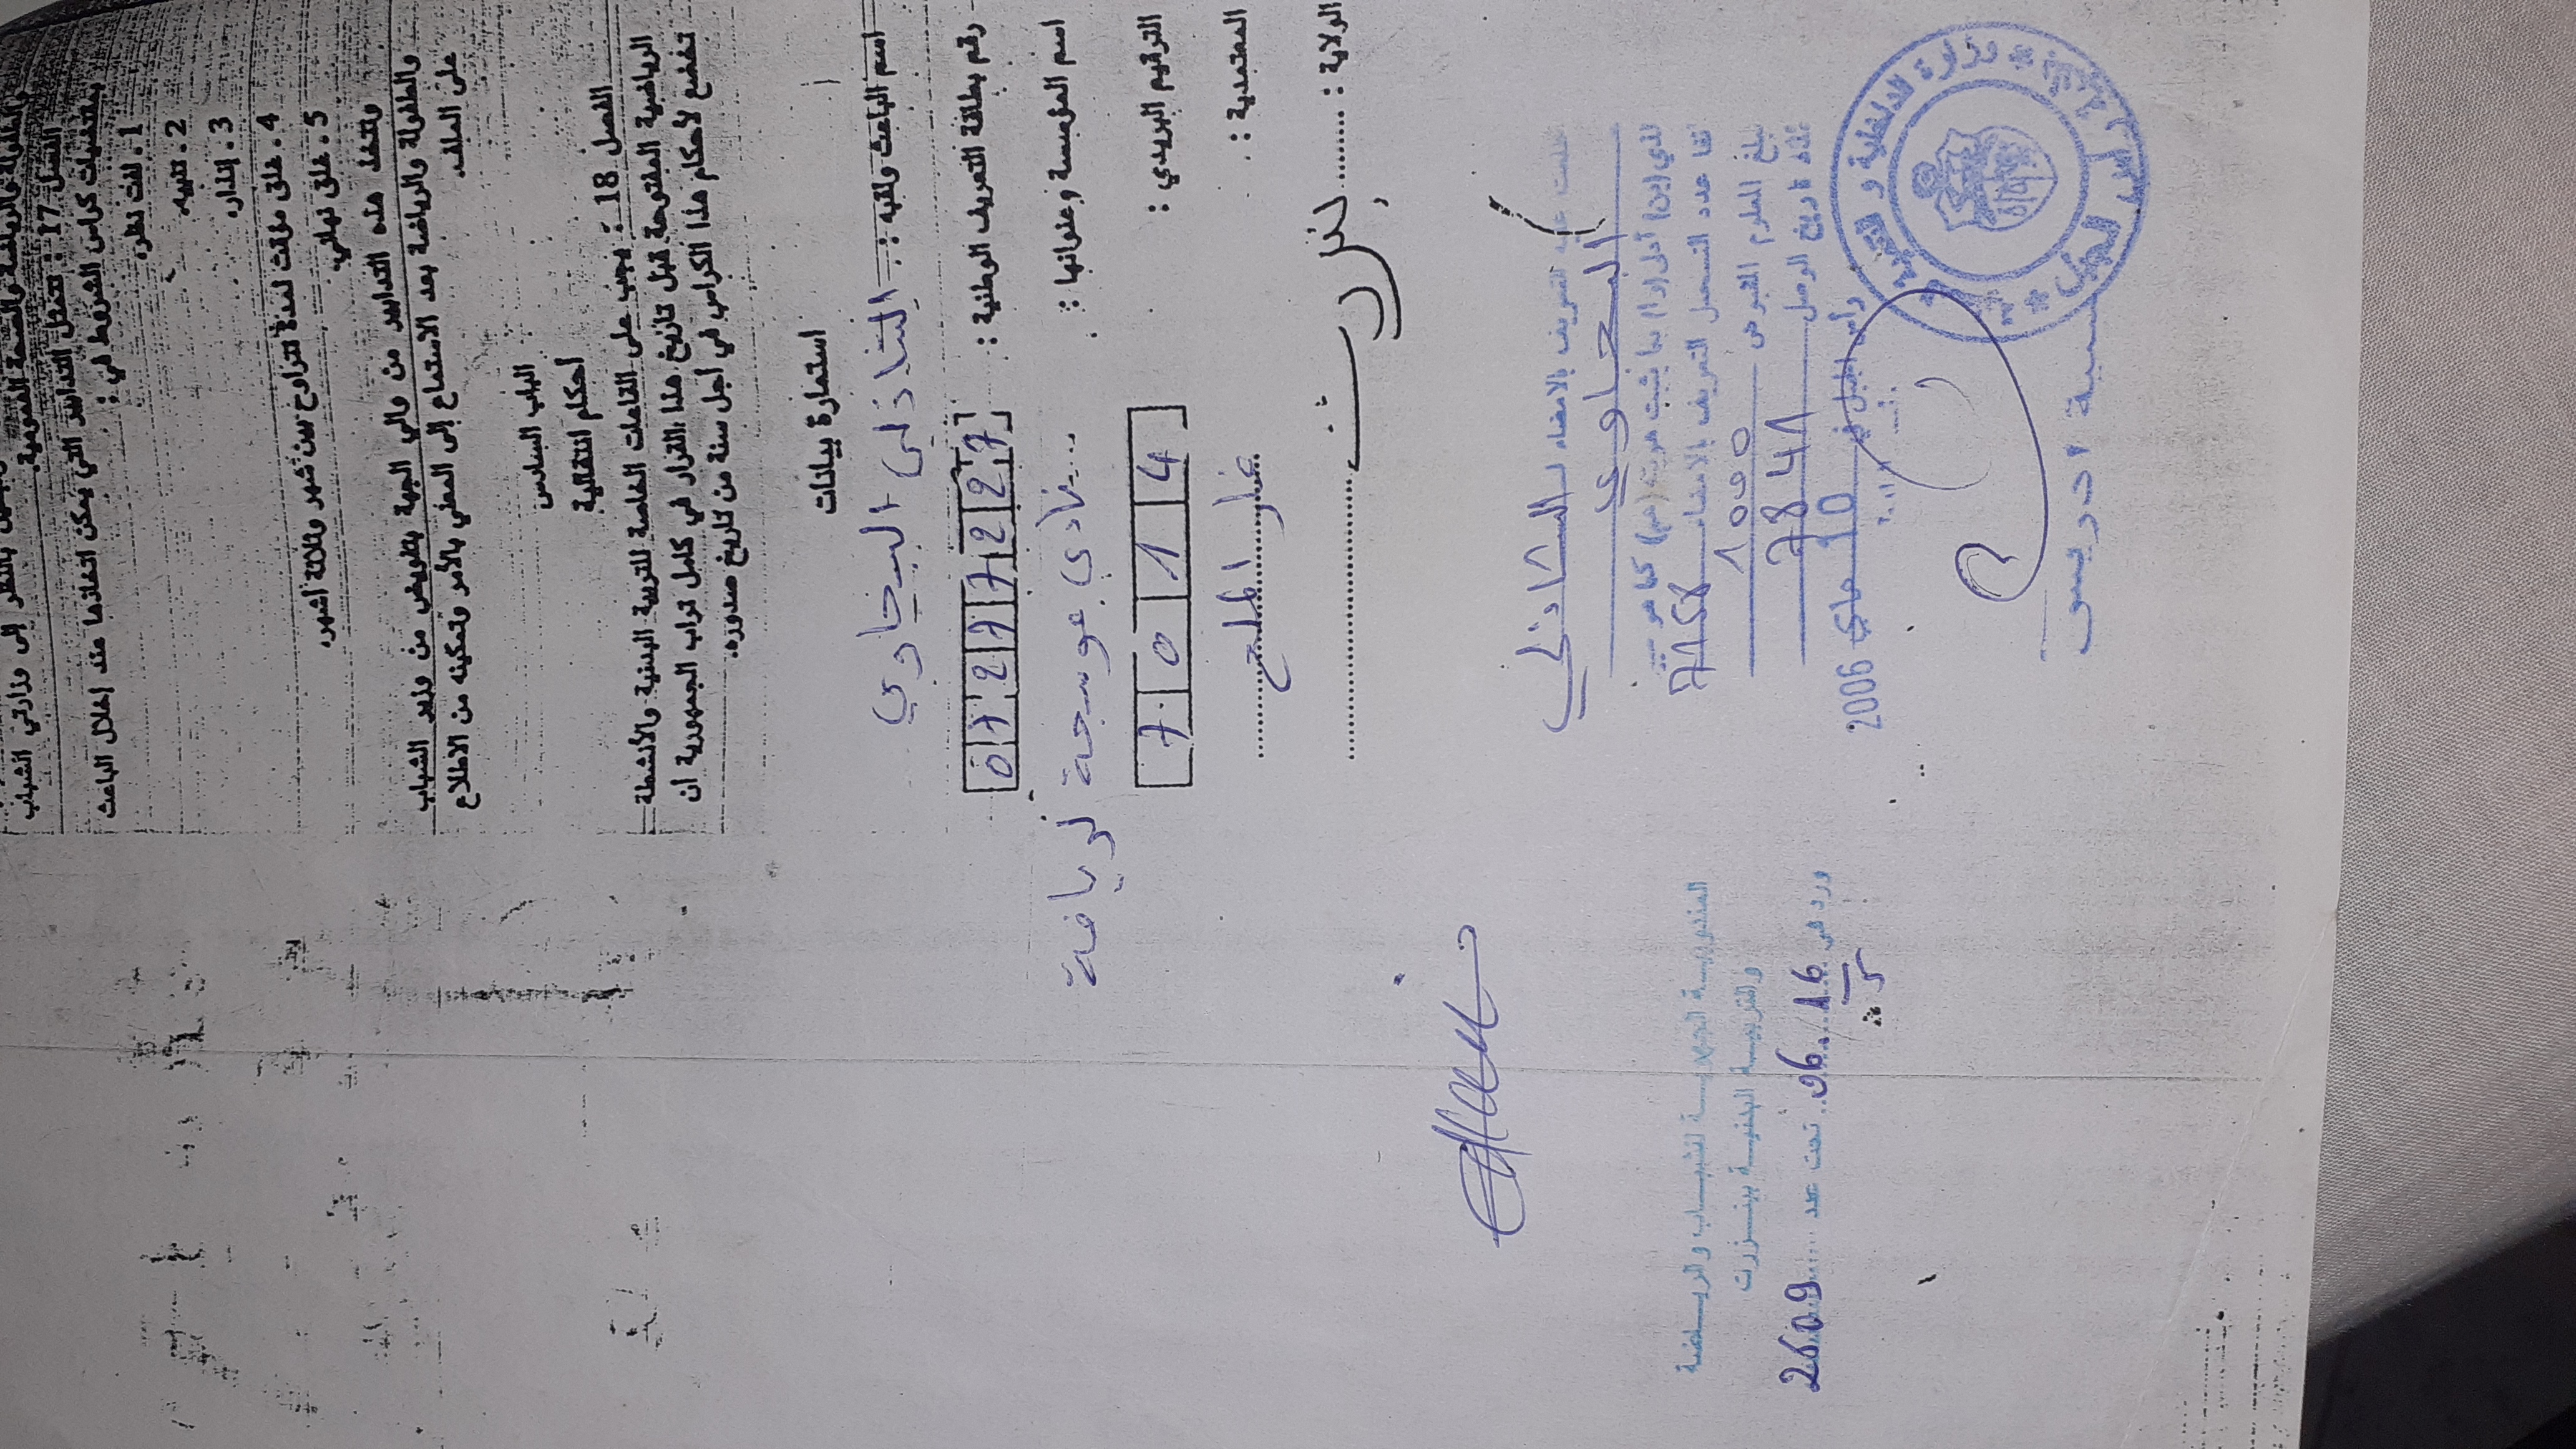 والطفولة والرياضة والصحة العمومية.
الفصل 17 : تتمثل التدابير التي يمكن اتخاذها عند إخلال الباعث
بمقتضيات كراس الشروط في :
1 . لفت نظر.
2 . تنبيه.
3 . إنذار.
4 . غلق مؤقت لمدة تتراوح بين شهر وثلاثة أشهر.
5 . غلق نهائي.
وتتخذ هذه التدابير من والي الجهة بتفويض من وزير الشباب
والطفولة والرياضة بعد الاستماع إلى المعني بالأمر وتمكينه من الاطلاع
على الملف.
الباب السادس
أحكام انتقالية
الفصل 18 : يجب على القاعات الخاصة للتربية البدنية والأنشطة
الرياضية المفتوحة قبل تاريخ هذا القرار في كامل تراب الجمهورية ان
تخضع لأحكام هذا الكراس في أجل سنة من تاريخ صدوره.
استمارة بيانات
اسم الباعث ولقبه : الشاذلي البجاوي
رقم بطاقة التعريف الوطنية : 07277227
اسم المؤسسة وعنوانها : نادي عوسجة للرياضة
الترقيم البريدي : 7014
المعتمدية : غار الملح
الولاية : بنزرت
التعريف بالامضاء لـ الشاذلي
البجاوي
عدد التسجيل التعريف بالامضاء
مبلغ المعلوم المقبوض
تاريخ الوصل 7841
رأس الجبل في 10 ماي 2006
وزارة الداخلية و التنمية المحلية
رأس الجبل
ادريس
المندوبية الجهوية للشباب والرياضة
والتربية البدنية ببنزرت
ورد في 16 .06 تحت عدد 2609